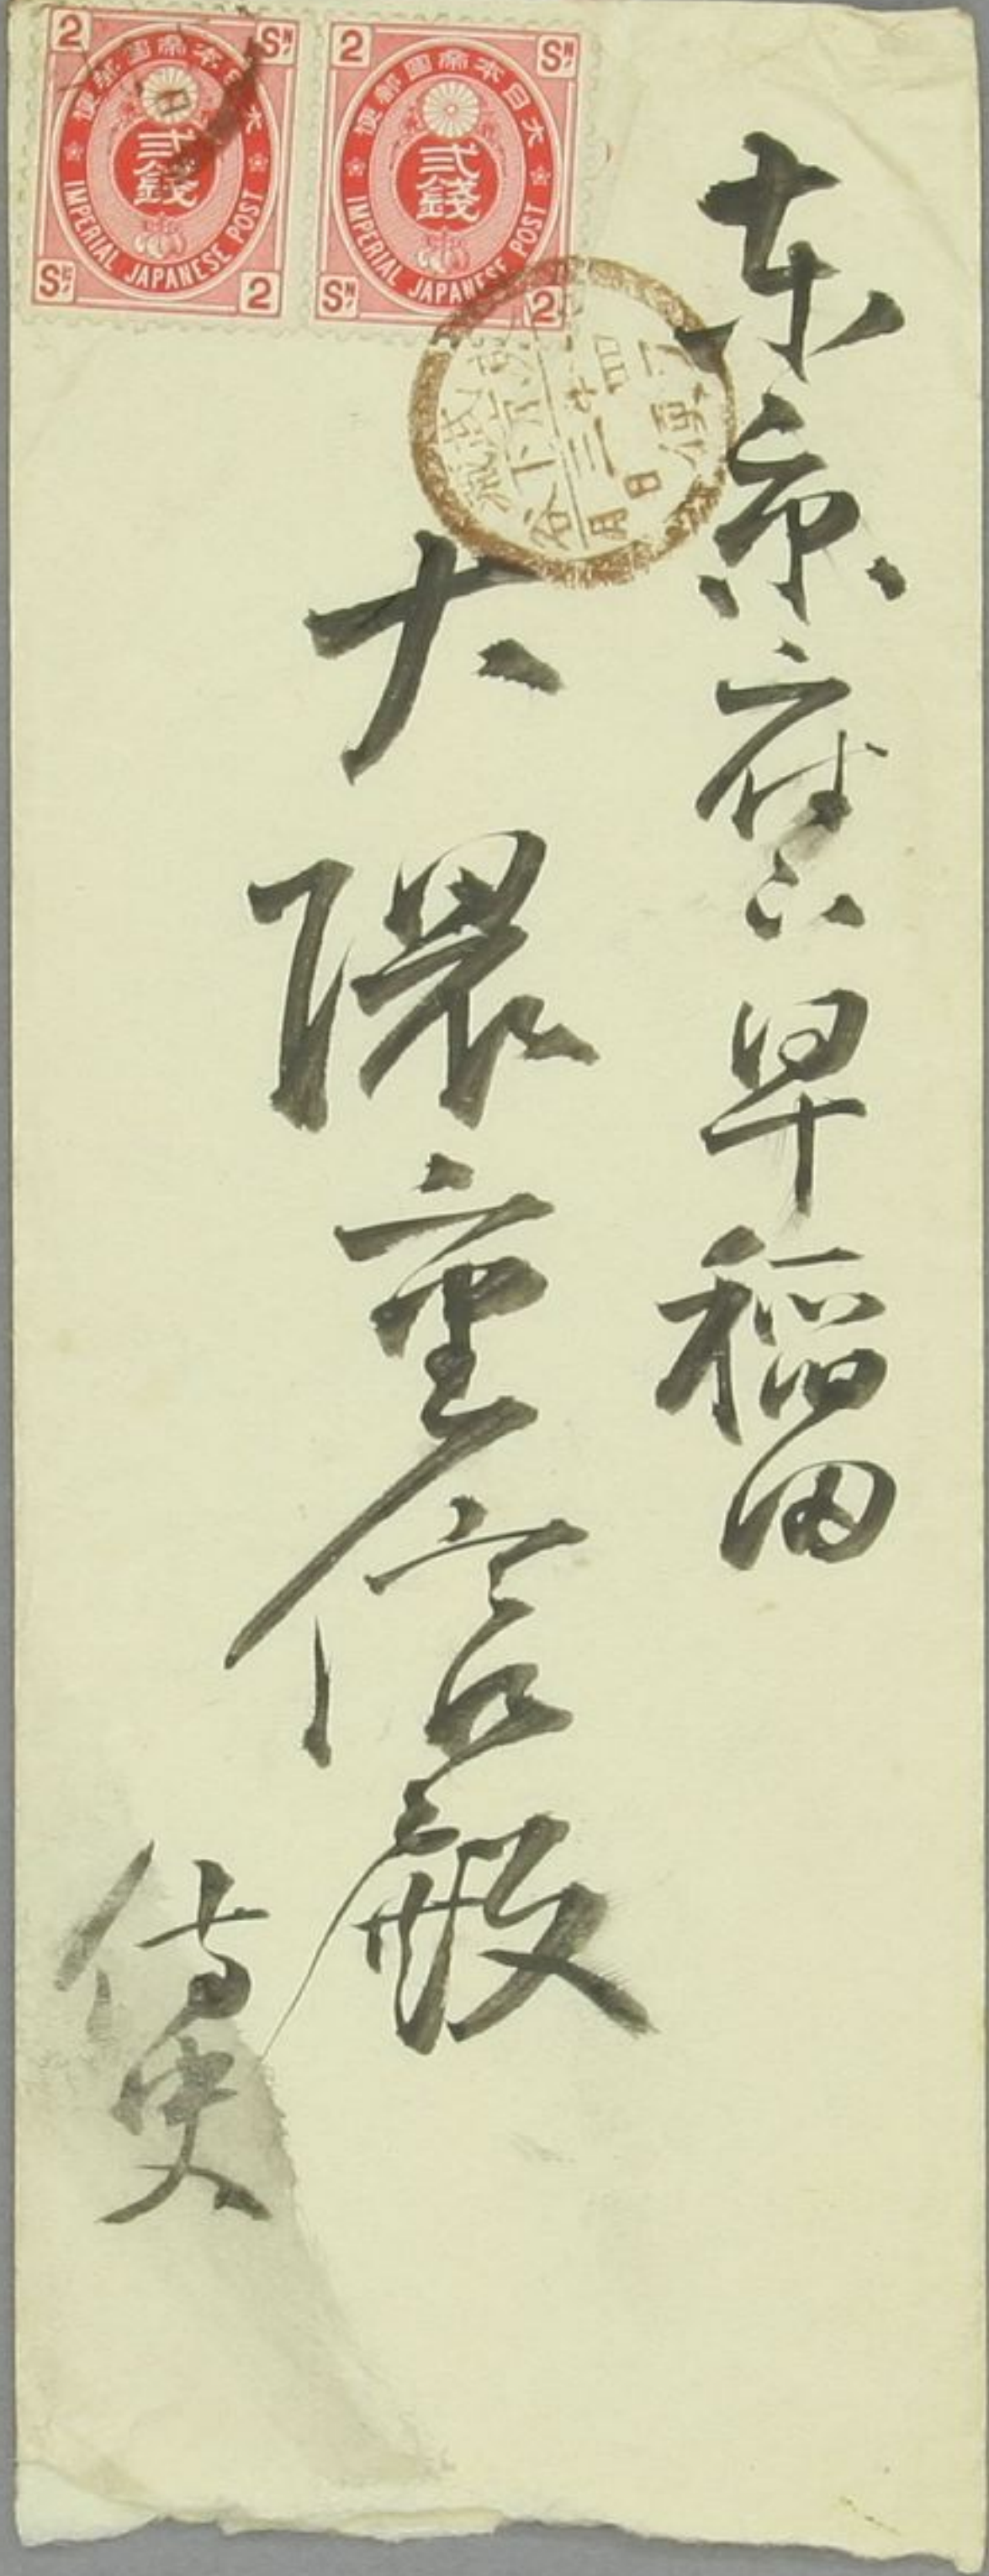 2 SN
大日本帝國郵便
貳錢
IMPERIAL JAPANESE POST
SN 2
2 SN
大日本帝國郵便
貳錢
IMPERIAL JAPANESE POST
SN 2
东京府下早稲田
大隈重信殿
侍史